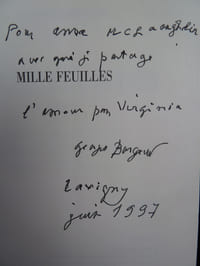 Pour anne McLaughlin
avec qui je partage
MILLE FEUILLES
l'amour pour Virginia
Georges Borgeaud
Lavigny
juin 1997